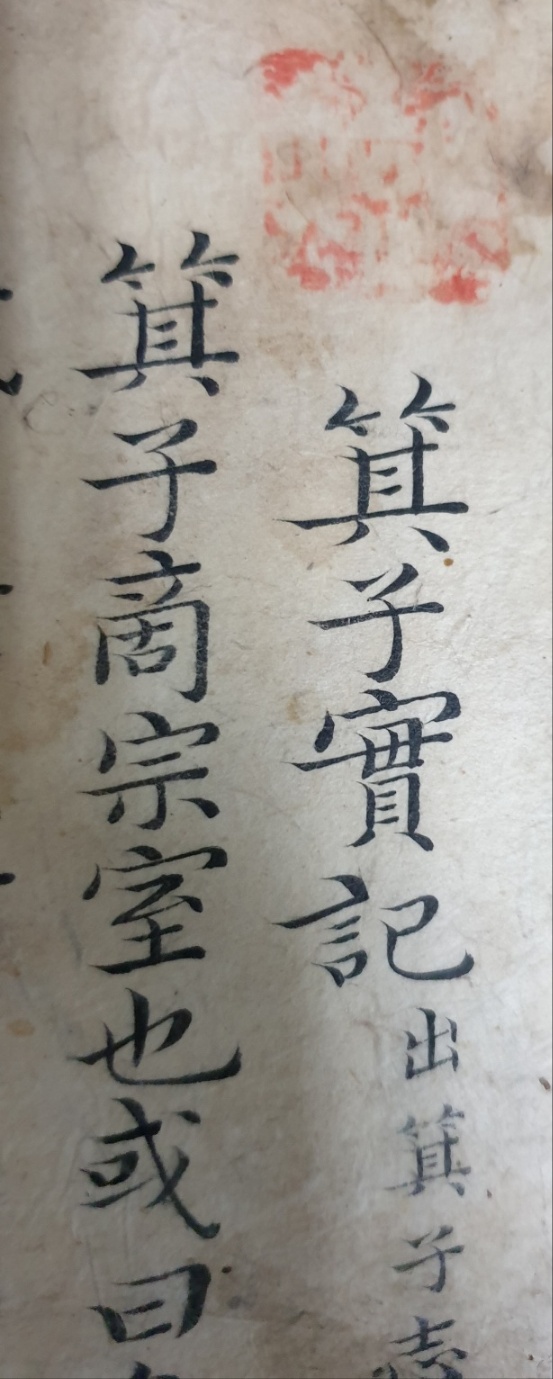 箕子實記出箕子志
箕子商宗室也或曰